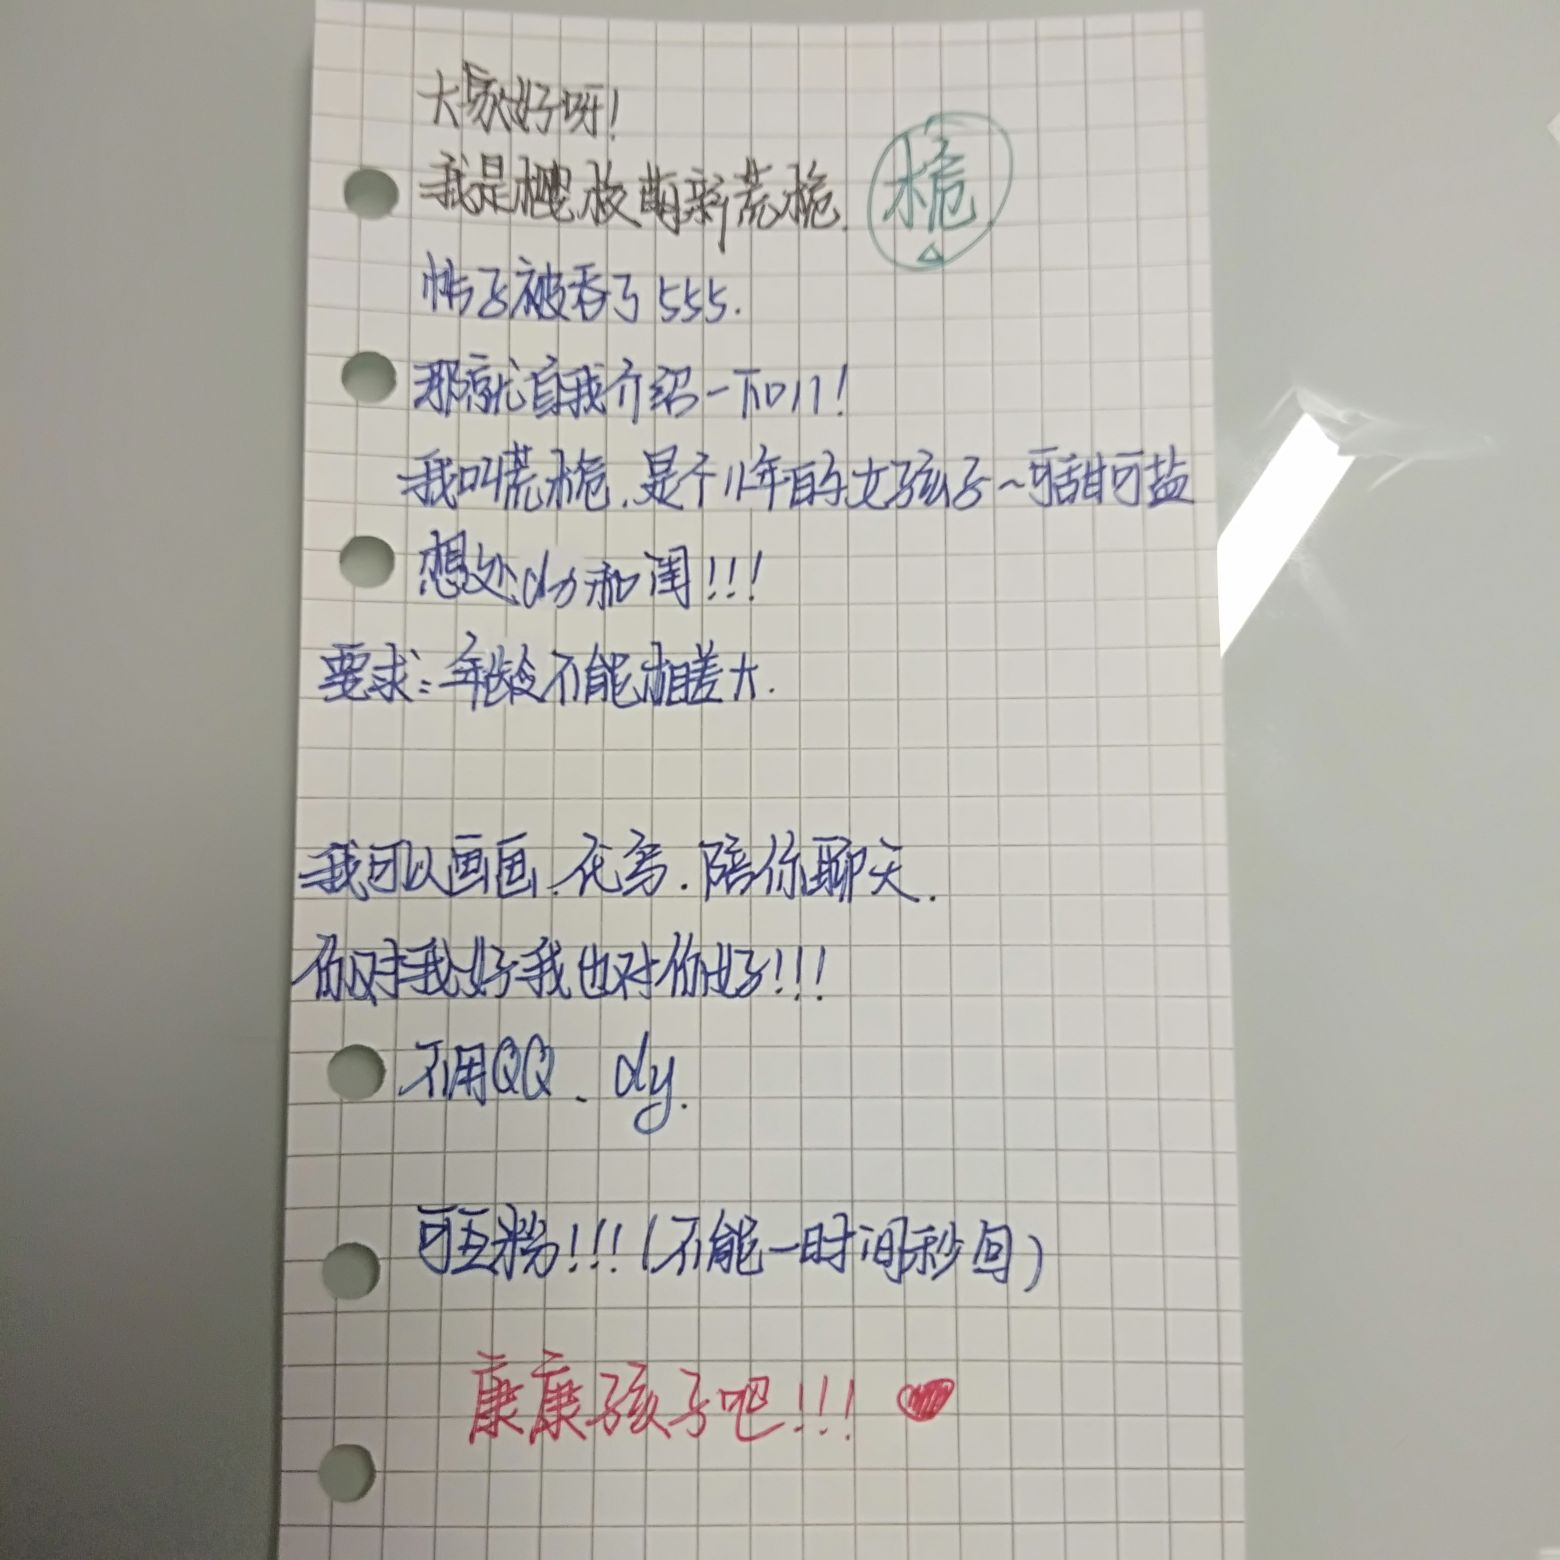 大家好呀！
我是樱校萌新荒桅.
桅
帖子被吞了555.
那就自我介绍一下叭！
我叫荒桅.是个11年的女孩子~可甜可盐
想处dy和闺!!!
要求：年龄不能相差大.
我可以画画.花写.陪你聊天.
你对我好我也对你好!!!
不用QQ、dy.
可互粉!!!(不能一时间秒回)
康康孩子吧!!!